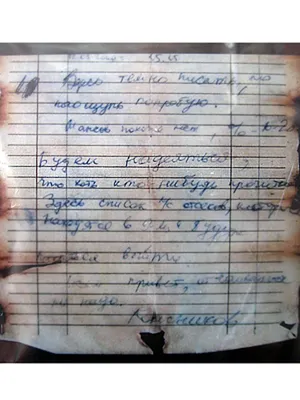 Здесь темно писать, но
наощупь попробую.
Шансов похоже нет, %
Будем надеяться
что хоть кто нибудь прочитает
Здесь список л/с отсеков, которые
находятся в 9-м и будут
выйти
Всем привет, отчаиваться
не надо.
Колесников